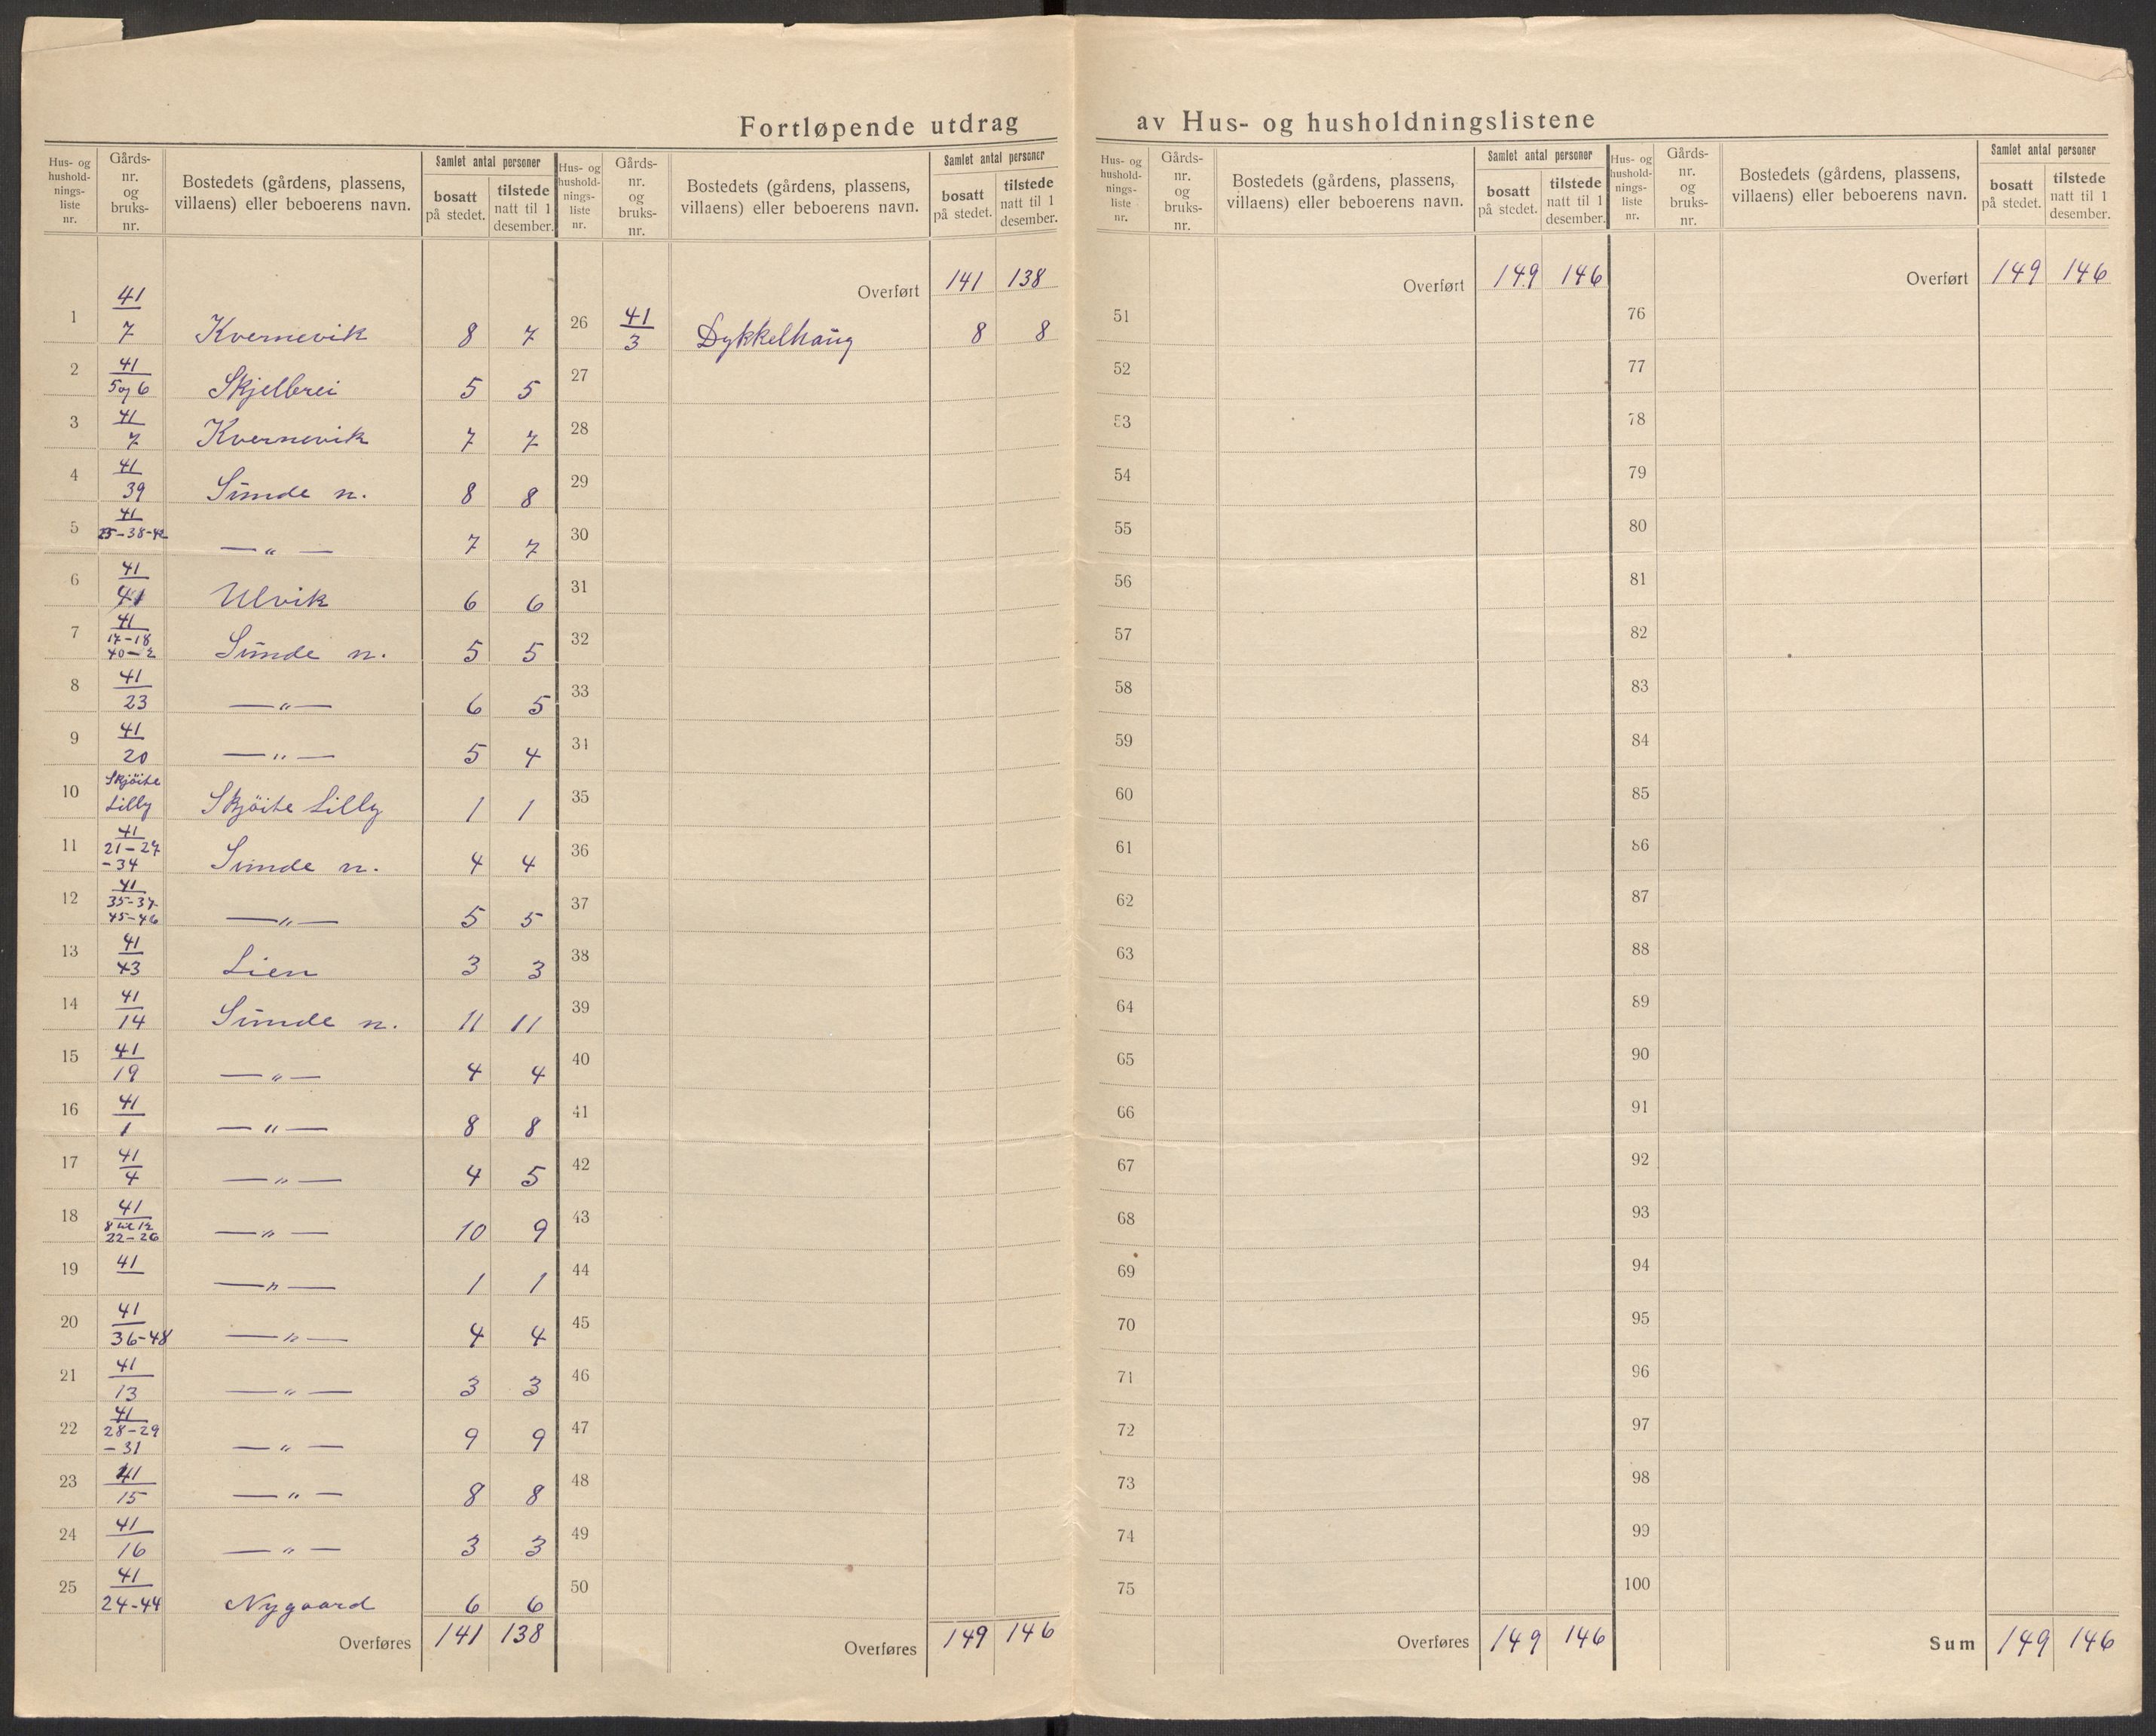 Fortløpende utdrag av Hus- og husholdningslistene
Hus- og hushold-nings-liste nr. | Gårds-nr. og bruks-nr. | Bostedets (gårdens, plassens, villaens) eller beboerens navn. | Samlet antal personer | bosatt på stedet. | tilstede natt til 1 desember.
1 41/7 Kvernevik 8 7
2 41/5 og 6 Skjelbrei 5 5
3 41/7 Kvernevik 7 7
4 41/39 Sunde n. 8 8
5 41/25-38-42 —"— 7 7
6 41/41 Ulvik 6 6
7 41/17-18 40-2 Sunde n. 5 5
8 41/23 —"— 6 5
9 41/20 —"— 5 4
10 Skjöite Lilly Skjöite Lilly 1 1
11 41/21-27-34 Sunde n. 4 4
12 41/35-37-45-46 —"— 5 5
13 41/43 Lien 3 3
14 41/14 Sunde n. 11 11
15 41/19 —"— 4 4
16 41/1 —"— 8 8
17 41/4 —"— 4 5
18 41/8 til 12 22-26 —"— 10 9
19 41 —"— 1 1
20 41/36-48 —"— 4 4
21 41/13 —"— 3 3
22 41/28-29-31 —"— 9 9
23 41/15 —"— 8 8
24 41/16 —"— 3 3
25 41/24-44 Nygaard 6 6
Overføres 141 138
Hus- og hushold-nings-liste nr. | Gårds-nr. og bruks-nr. | Bostedets (gårdens, plassens, villaens) eller beboerens navn. | Samlet antal personer | bosatt på stedet. | tilstede natt til 1 desember.
Overført 141 138
26 41/3 Dykkelhaug 8 8
27
28
29
30
31
32
33
34
35
36
37
38
39
40
41
42
43
44
45
46
47
48
49
50
Overføres 149 146
Hus- og hushold-nings-liste nr. | Gårds-nr. og bruks-nr. | Bostedets (gårdens, plassens, villaens) eller beboerens navn. | Samlet antal personer | bosatt på stedet. | tilstede natt til 1 desember.
Overført 149 146
51
52
53
54
55
56
57
58
59
60
61
62
63
64
65
66
67
68
69
70
71
72
73
74
75
Overføres 149 146
Hus- og hushold-nings-liste nr. | Gårds-nr. og bruks-nr. | Bostedets (gårdens, plassens, villaens) eller beboerens navn. | Samlet antal personer | bosatt på stedet. | tilstede natt til 1 desember.
Overført 149 146
76
77
78
79
80
81
82
83
84
85
86
87
88
89
90
91
92
93
94
95
96
97
98
99
100
Sum 149 146